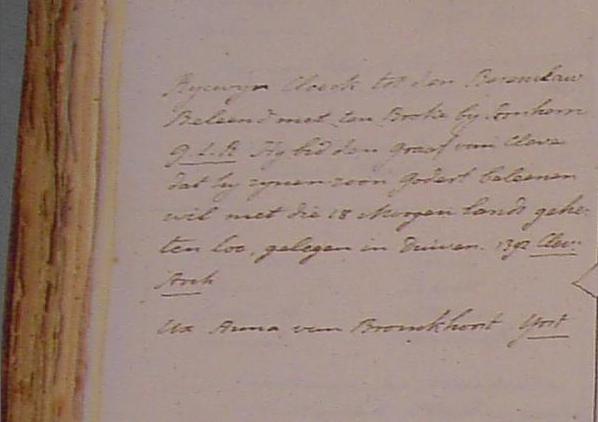 Rycwyn Cloeck tot den Berenclaw
Beleend met ten Broke by Arnhem
G.L.R. Hy bid den Graaf van Cleve
dat hy zynen zoon Godert beleenen
wil met die 18 Morgen lands gehe-
ten loe, gelegen in Duiven. 1392 Clev.
Arch
Ux Anna van Bronckhorst